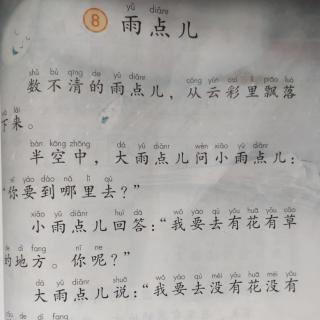 yǔ diǎnr
8 雨点儿
shǔ bù qīng de yǔ diǎnr cóng yún cai lǐ piāo luò
数不清的雨点儿，从云彩里飘落
xià lái
下来。
bàn kōng zhōng dà yǔ diǎnr wèn xiǎo yǔ diǎnr
半空中，大雨点儿问小雨点儿：
nǐ yào dào nǎ lǐ qù
“你要到哪里去？”
xiǎo yǔ diǎnr huí dá wǒ yào qù yǒu huā yǒu cǎo
小雨点儿回答：“我要去有花有草
de dì fang nǐ ne
的地方。你呢？”
dà yǔ diǎnr shuō wǒ yào qù méi yǒu huā méi yǒu
大雨点儿说：“我要去没有花没有
cǎo de dì fang